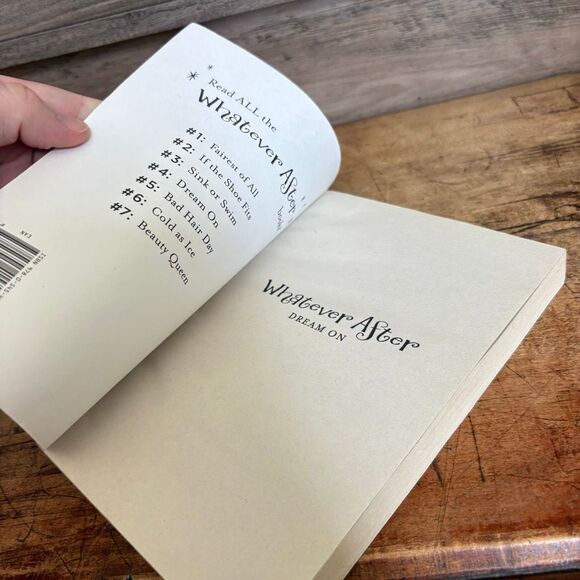 Read ALL the
Whatever After
books!
#1: Fairest of All
#2: If the Shoe Fits
#3: Sink or Swim
#4: Dream On
#5: Bad Hair Day
#6: Cold as Ice
#7: Beauty Queen
EAN
ISBN 978-0-545
Whatever After
DREAM ON